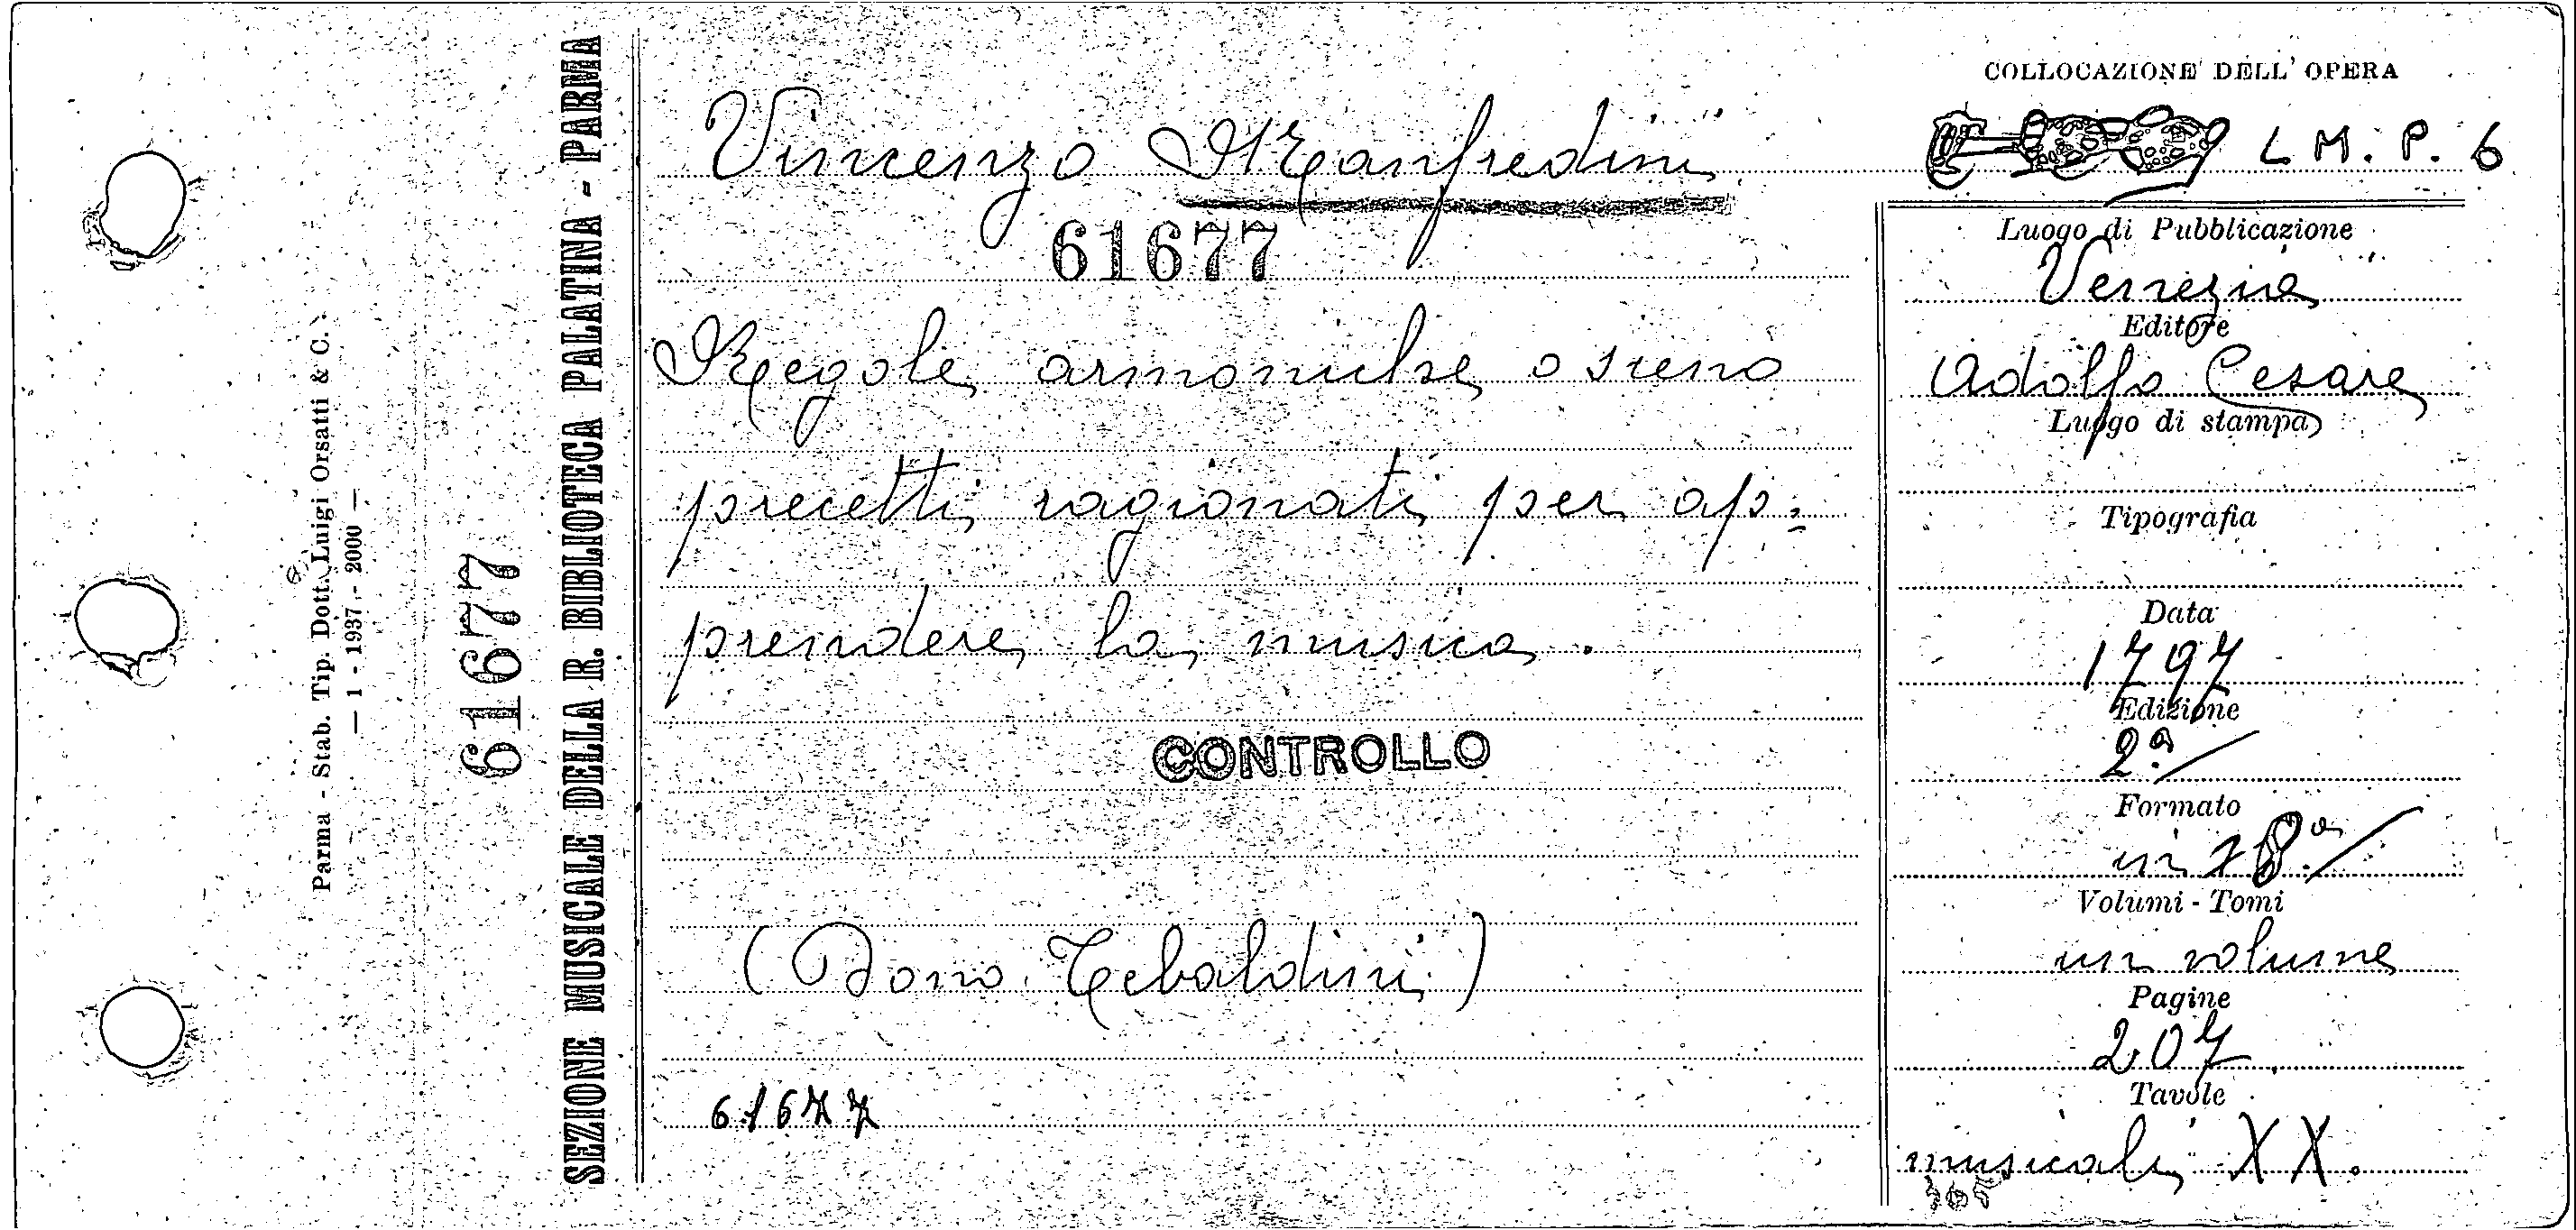 Parma - Stab. Tip. Dott. Luigi Orsatti & C.
— 1 - 1937 - 2000 —
61677
SEZIONE MUSICALE DELLA R. BIBLIOTECA PALATINA - PARMA
Vincenzo Manfredini
61677
Regole armoniche o sieno
precetti ragionati per ap=
prendere la musica.
CONTROLLO
(Dono Tebaldini)
61677
COLLOCAZIONE DELL' OPERA
L M. P. 6
Luogo di Pubblicazione
Venezia
Editore
Adolfo Cesare
Luogo di stampa
Tipografia
Data
1797
Edizione
2a
Formato
in
Volumi - Tomi
un volume
Pagine
207
Tavole
musicali XX.